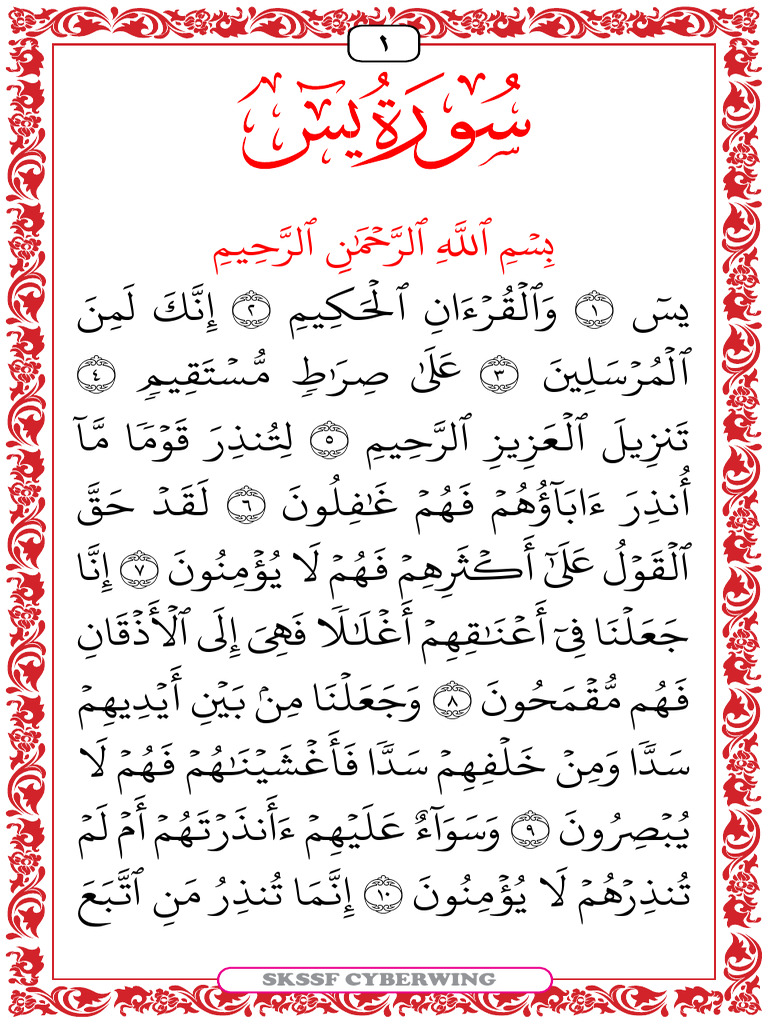 ١
سُورَةُ يسٓ
بِسۡمِ ٱللَّهِ ٱلرَّحۡمَٰنِ ٱلرَّحِيمِ
يسٓ ١ وَٱلۡقُرۡءَانِ ٱلۡحَكِيمِ ٢ إِنَّكَ لَمِنَ
ٱلۡمُرۡسَلِينَ ٣ عَلَىٰ صِرَٰطٖ مُّسۡتَقِيمٖ ٤
تَنزِيلَ ٱلۡعَزِيزِ ٱلرَّحِيمِ ٥ لِتُنذِرَ قَوۡمٗا مَّآ
أُنذِرَ ءَابَآؤُهُمۡ فَهُمۡ غَٰفِلُونَ ٦ لَقَدۡ حَقَّ
ٱلۡقَوۡلُ عَلَىٰٓ أَكۡثَرِهِمۡ فَهُمۡ لَا يُؤۡمِنُونَ ٧ إِنَّا
جَعَلۡنَا فِيٓ أَعۡنَٰقِهِمۡ أَغۡلَٰلٗا فَهِيَ إِلَى ٱلۡأَذۡقَانِ
فَهُم مُّقۡمَحُونَ ٨ وَجَعَلۡنَا مِنۢ بَيۡنِ أَيۡدِيهِمۡ
سَدّٗا وَمِنۡ خَلۡفِهِمۡ سَدّٗا فَأَغۡشَيۡنَٰهُمۡ فَهُمۡ لَا
يُبۡصِرُونَ ٩ وَسَوَآءٌ عَلَيۡهِمۡ ءَأَنذَرۡتَهُمۡ أَمۡ لَمۡ
تُنذِرۡهُمۡ لَا يُؤۡمِنُونَ ١٠ إِنَّمَا تُنذِرُ مَنِ ٱتَّبَعَ
SKSSF CYBERWING